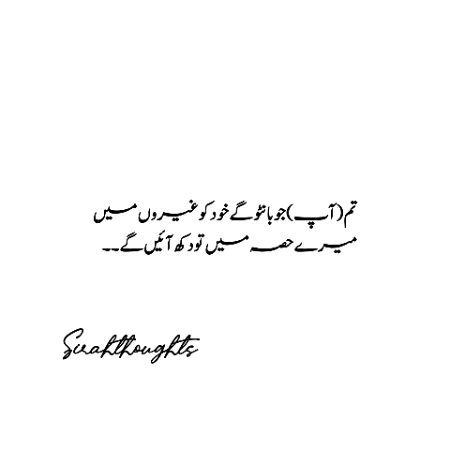 تم(آپ)جو بانٹو گے خود کو غیروں میں
میرے حصہ میں تو دکھ آئیں گے۔۔
Sirahthoughts